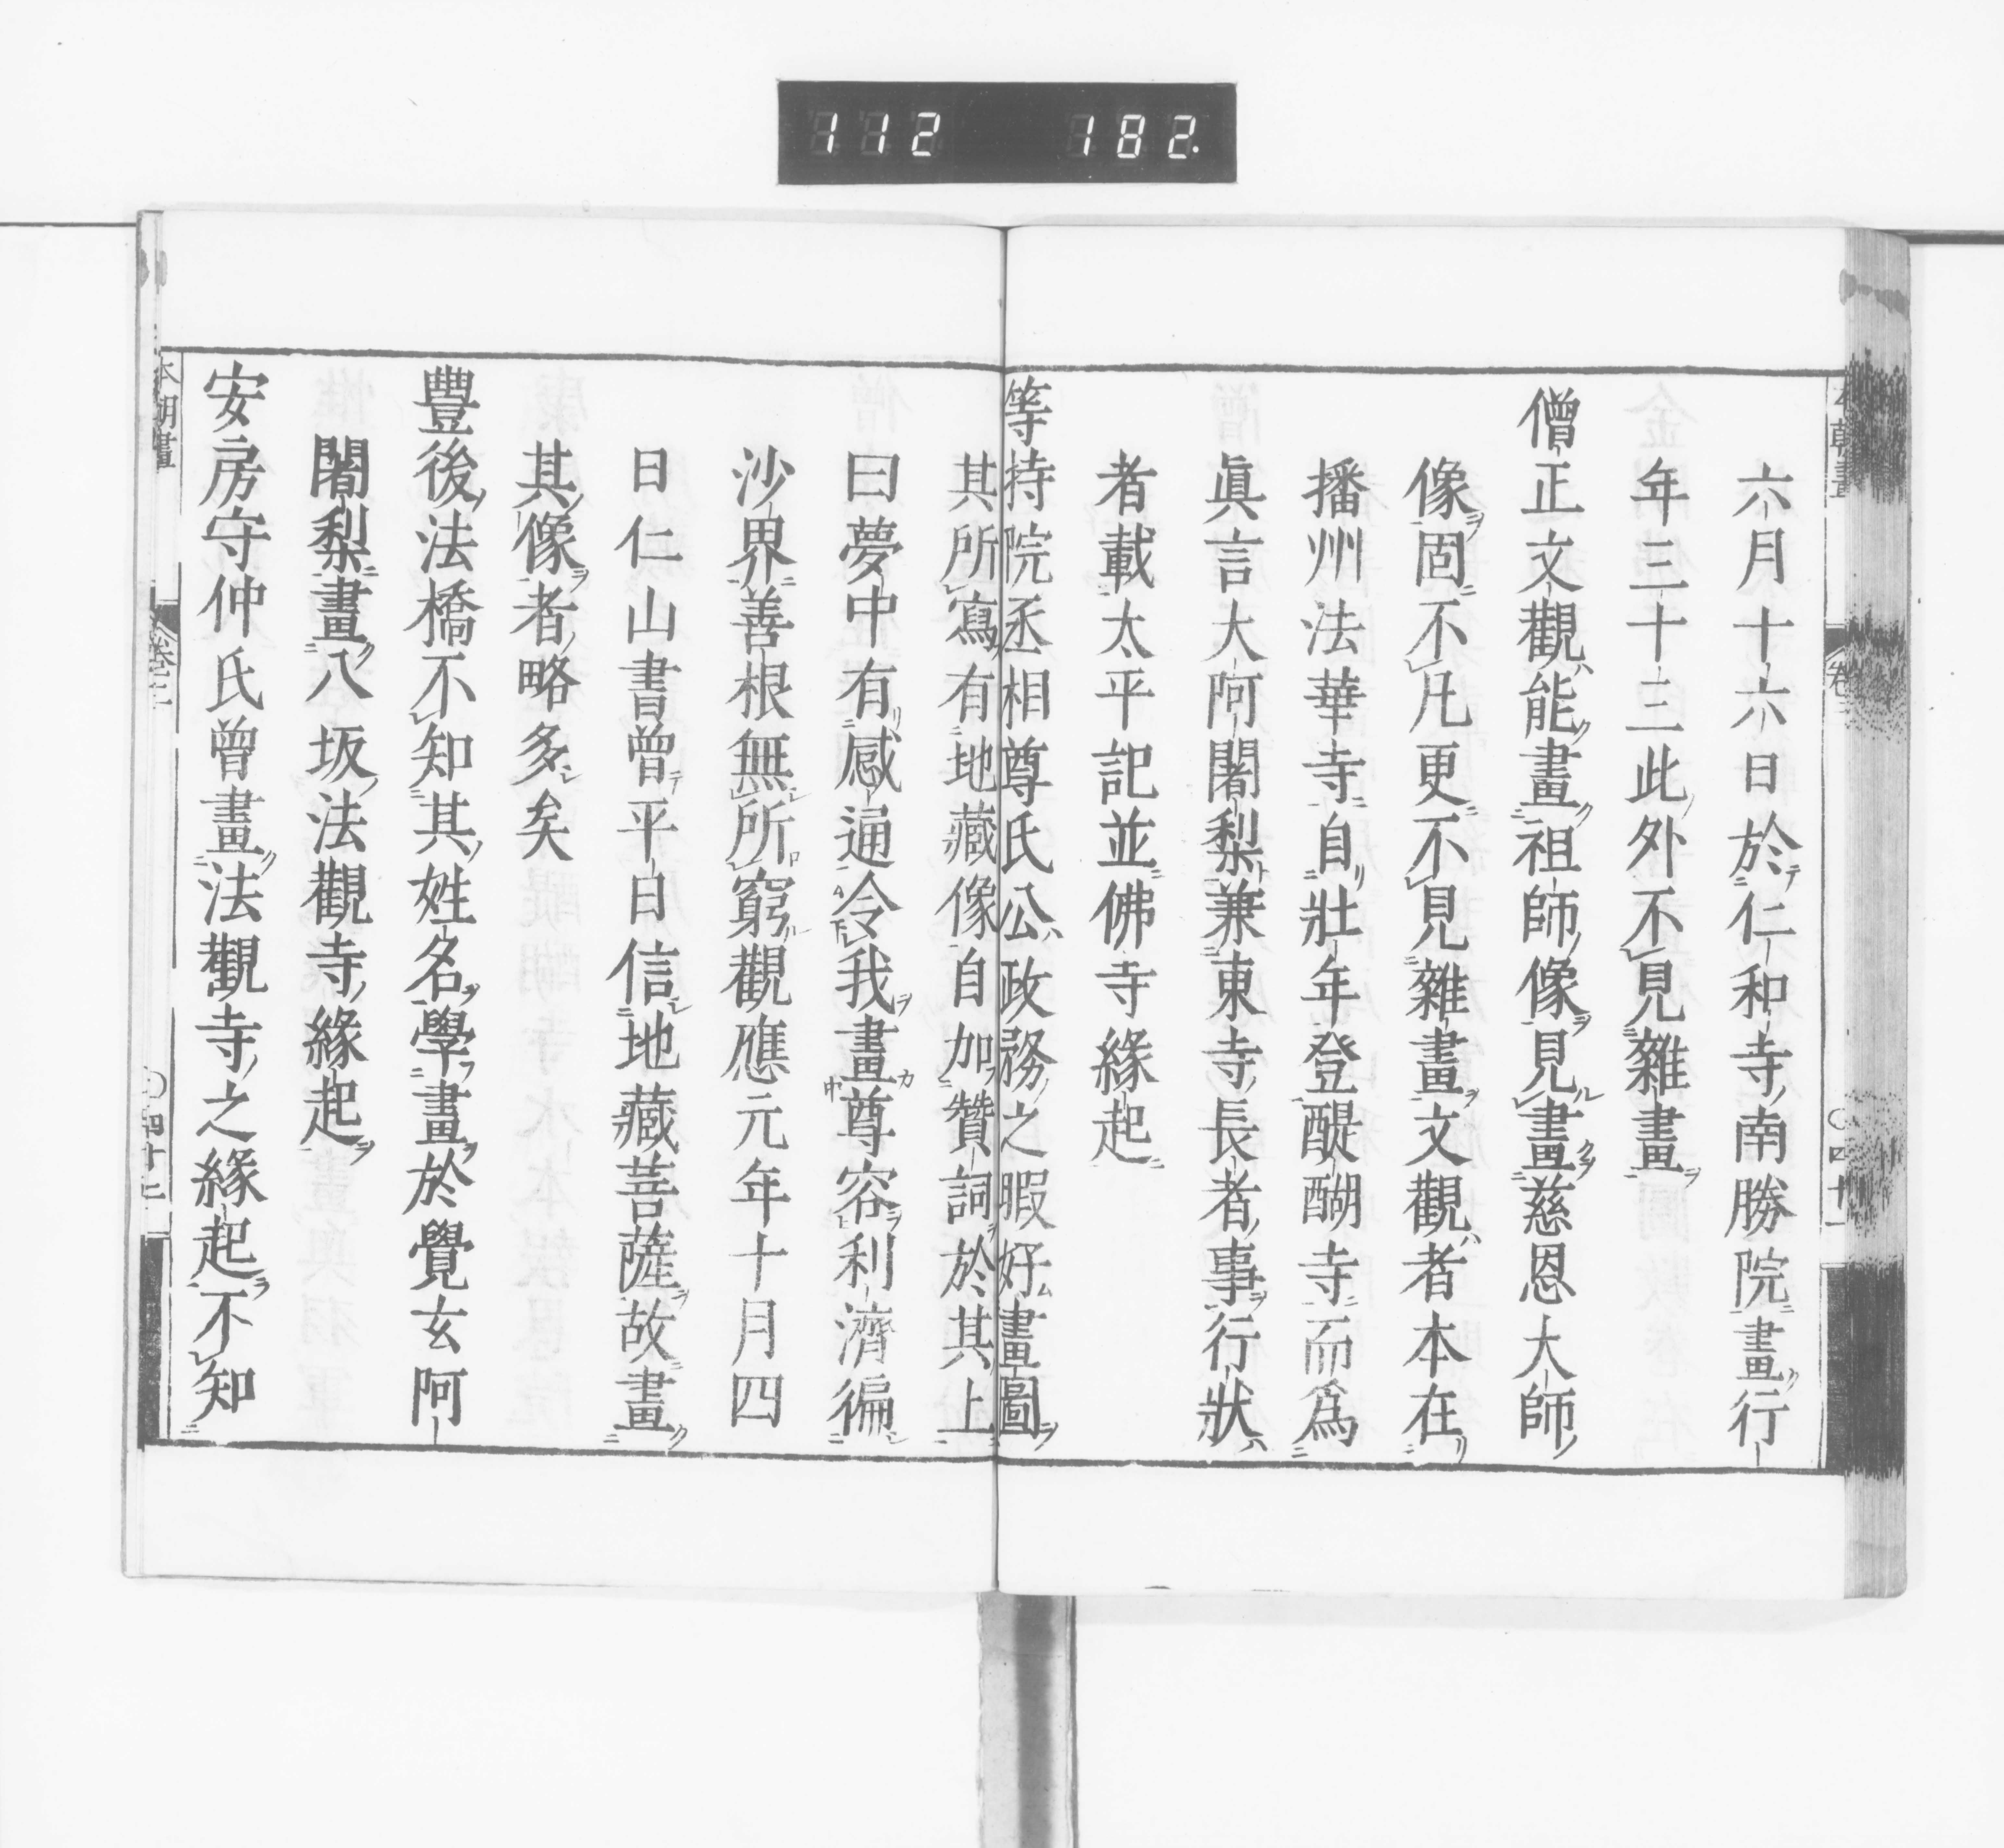 112 182.
六月十六日於仁和寺南勝院畫行
年三十三此外不見雜畫
僧正文觀能畫祖師像見畫慈恩大師
像固不凡更不見雜畫文觀者本在
播州法華寺自壯年登醍醐寺而爲
眞言大阿闍梨兼東寺長者事行狀
者載太平記並佛寺緣起
等持院丞相尊氏公政務之暇好畫圖
其所寫有地藏像自加贊詞於其上
曰夢中有感通令我畫尊容利濟徧
沙界善根無所窮觀應元年十月四
日仁山書曾平日信地藏菩薩故畫
其像者略多矣
豐後法橋不知其姓名學畫於覺玄阿
闍梨畫八坂法觀寺緣起
安房守仲氏曾畫法觀寺之緣起不知